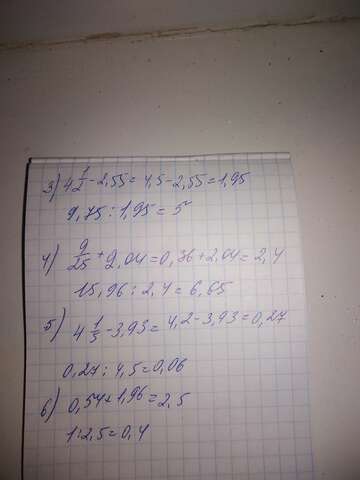 3) 4 1/2 - 2,55 = 4,5 - 2,55 = 1,95
9,75 : 1,95 = 5
4) 9/25 + 2,04 = 0,36 + 2,04 = 2,4
15,96 : 2,4 = 6,65
5) 4 1/5 - 3,93 = 4,2 - 3,93 = 0,27
0,27 : 4,5 = 0,06
6) 0,54 + 1,96 = 2,5
1 : 2,5 = 0,4